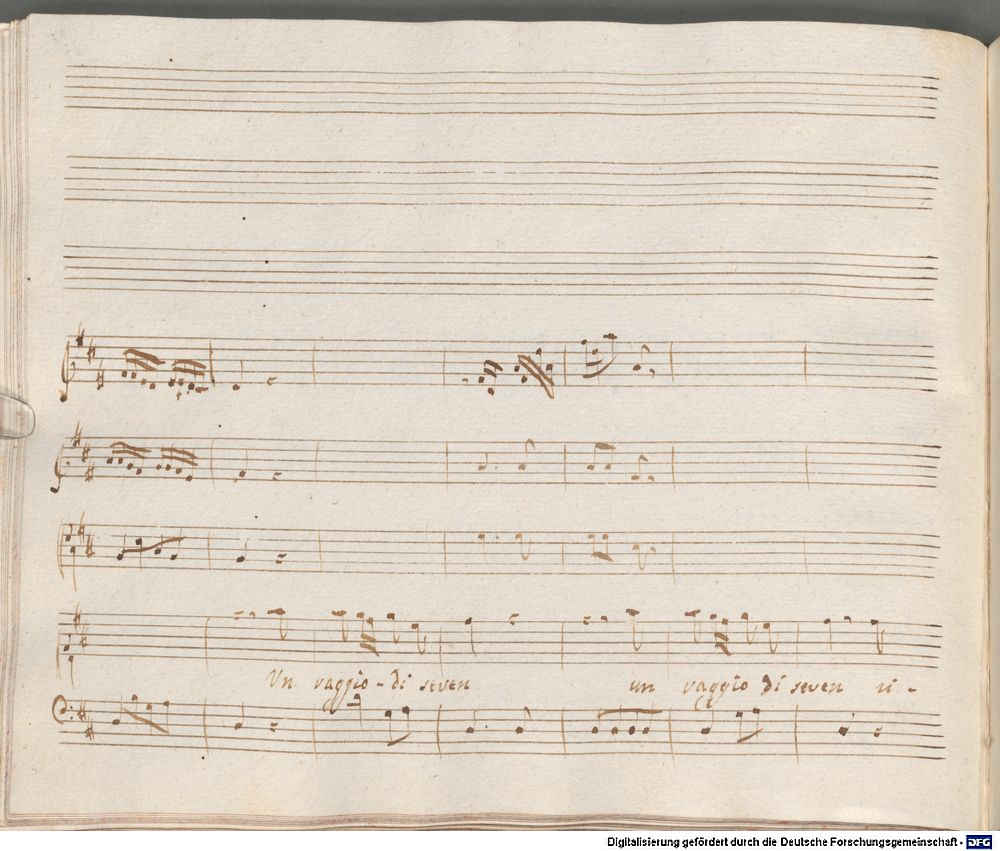 Un raggio - di seren un raggio di seren u -
Digitalisierung gefördert durch die Deutsche Forschungsgemeinschaft - DFG